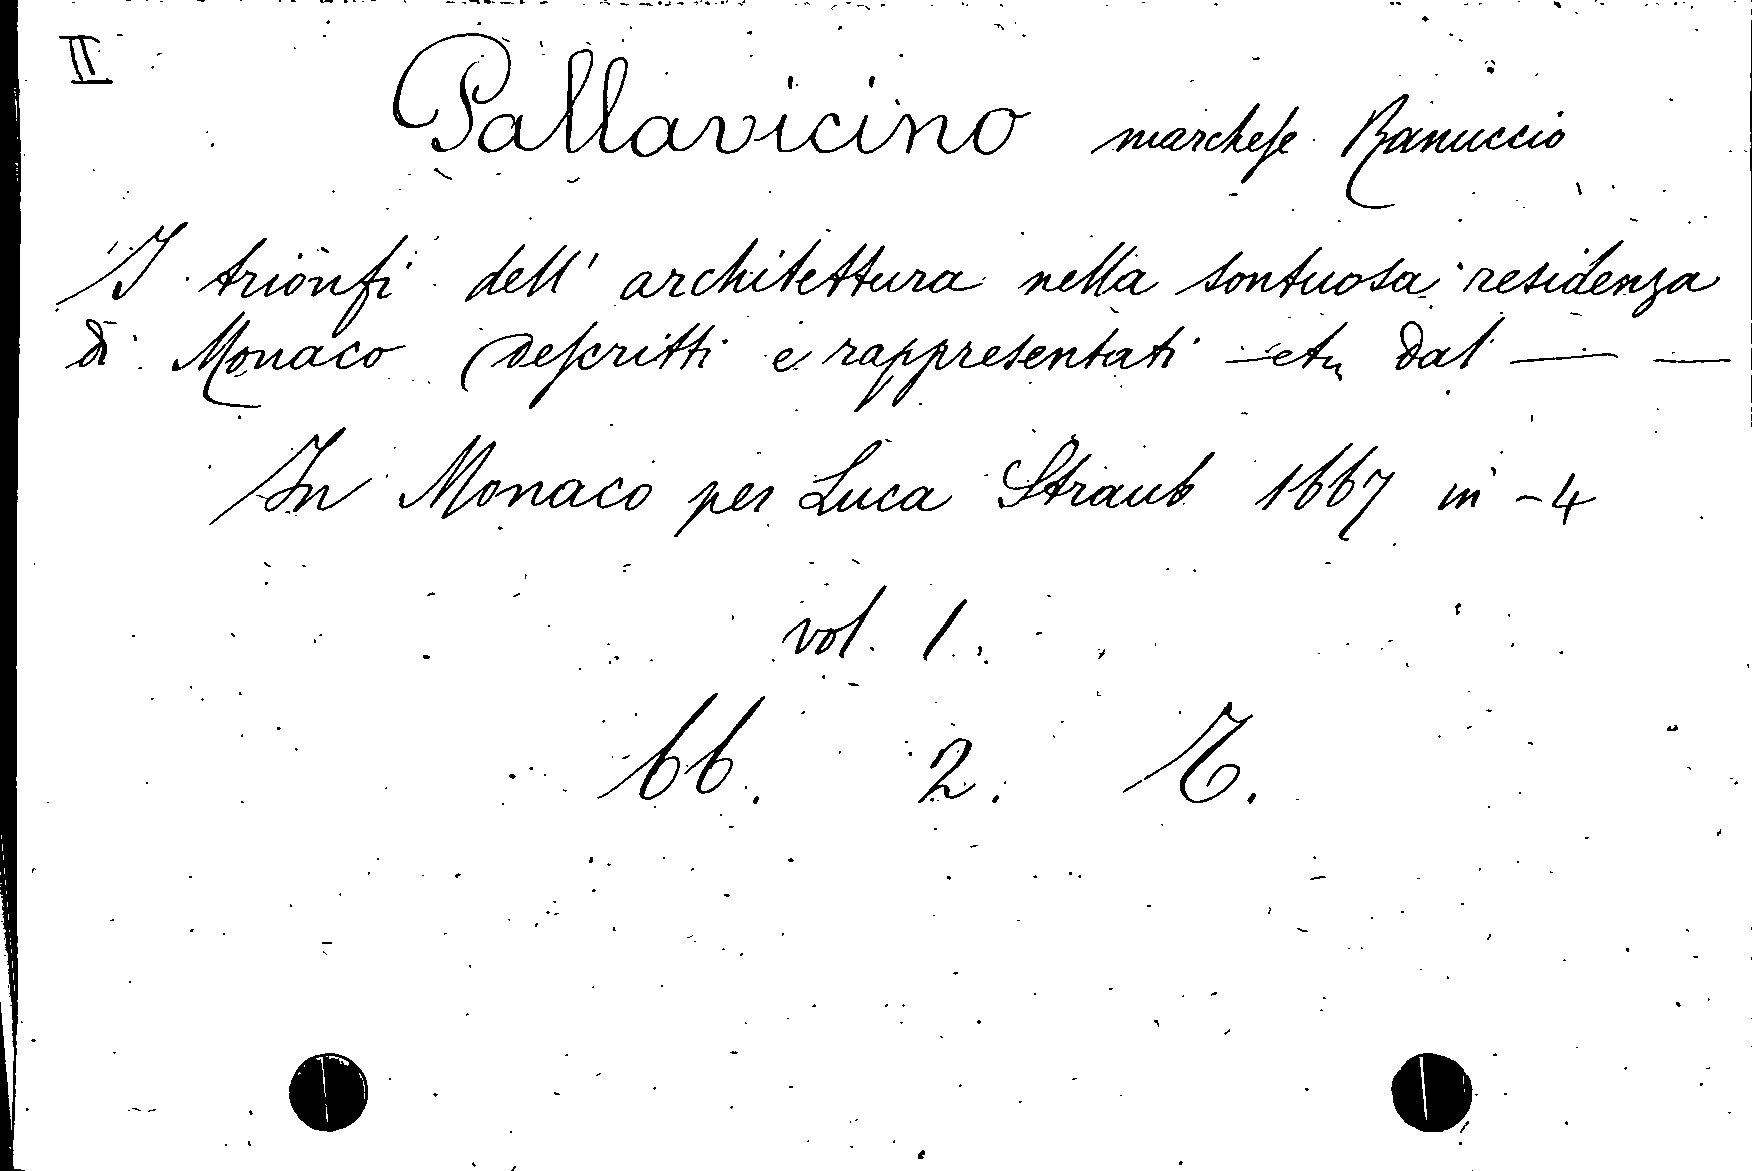 II
Pallavicino marchese Ranuccio
I trionfi dell' architettura nella sontuosa residenza
di Monaco descritti e rappresentati - etc dal — —
In Monaco per Luca Straub 1667 in - 4
vol. 1.
66. 2.